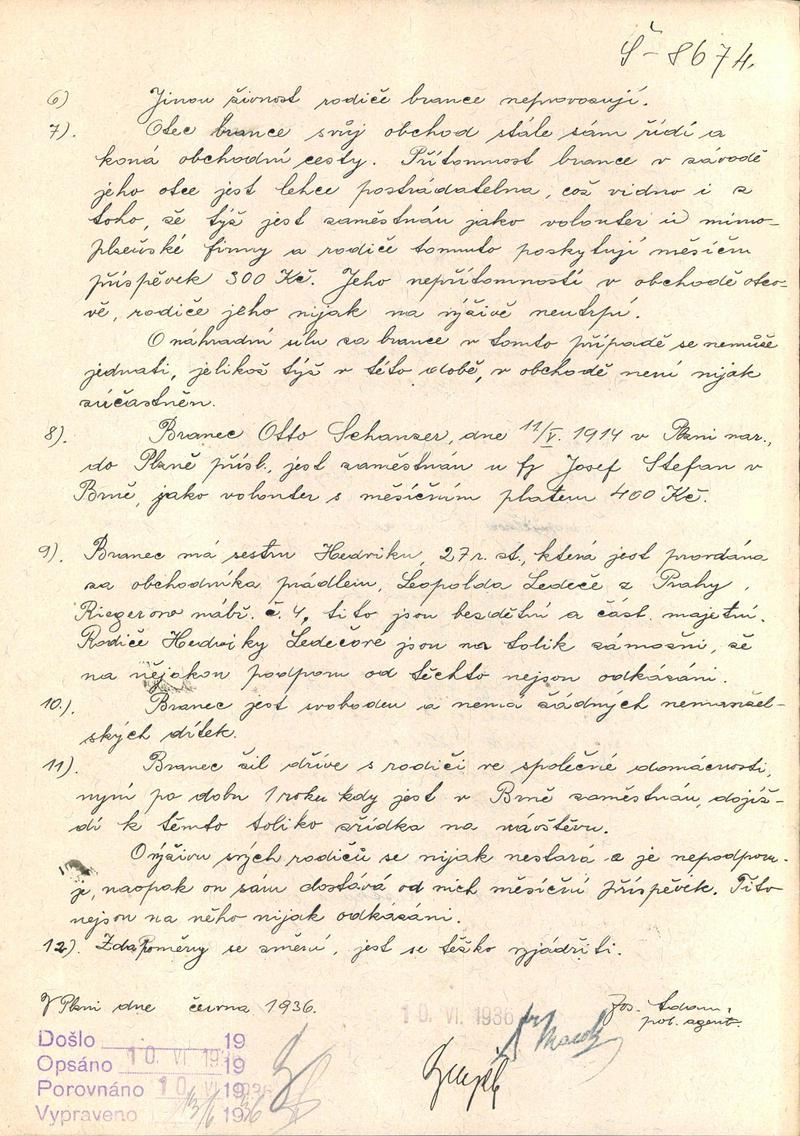 Š-8674.
6) Jinou živnost rodiče brance neprovozují.
7). Otec brance svůj obchod stále sám řídí a
koná obchodní cesty. Přítomnost brance v závodě
jeho otce jest lehce postrádatelna, což vidno i z
toho, že týž jest zaměstnán jako volonter u mimo-
plzeňské firmy a rodiče tomuto poskytují měsíční
příspěvek 300 Kč. Jeho nepřítomností v obchodě otco-
vě, rodiče jeho nijak na výživě neutrpí.
O náhradní sílu za brance v tomto případě se nemůže
jednati, jelikož týž v této době, v obchodě není nijak
zúčastněn.
8). Branec Otto Schanzer, dne 11/V. 1914 v Plzni nar.,
do Plzně přísl., jest zaměstnán u fy Josef Stefan v
Brně, jako volonter s měsíčním platem 400 Kč.
9). Branec má sestru Hedviku, 27 r. st., která jest provdána
za obchodníka prádlem, Leopolda Ledeče z Prahy,
Riegrovo nábř. č. 4, tito jsou bezdětní a část. majetní.
Rodiče Hedviky Ledečové jsou na tolik zámožni, že
na nějakou podporu od těchto nejsou odkázáni.
10.). Branec jest svoboden a nemá žádných nemanžel-
ských dítek.
11). Branec žil dříve s rodiči ve společné domácnosti,
nyní po dobu 1 roku kdy jest v Brně zaměstnán, dojíž-
dí k těmto toliko zřídka na návštěvu.
O výživu svých rodičů se nijak nestará a je nepodporu-
je, naopak on sám dostává od nich měsíční příspěvek. Tito
nejsou na něho nijak odkázáni.
12). Zda poměry se změní, jest se těžko vyjádřiti.
V Plzni dne června 1936.
10. VI. 1936
Jos. Adam,
pol. agent.
Došlo 19
Opsáno 10. VI 1936 19
Porovnáno 10. VI 1936 19
Vypraveno 13/6 1936